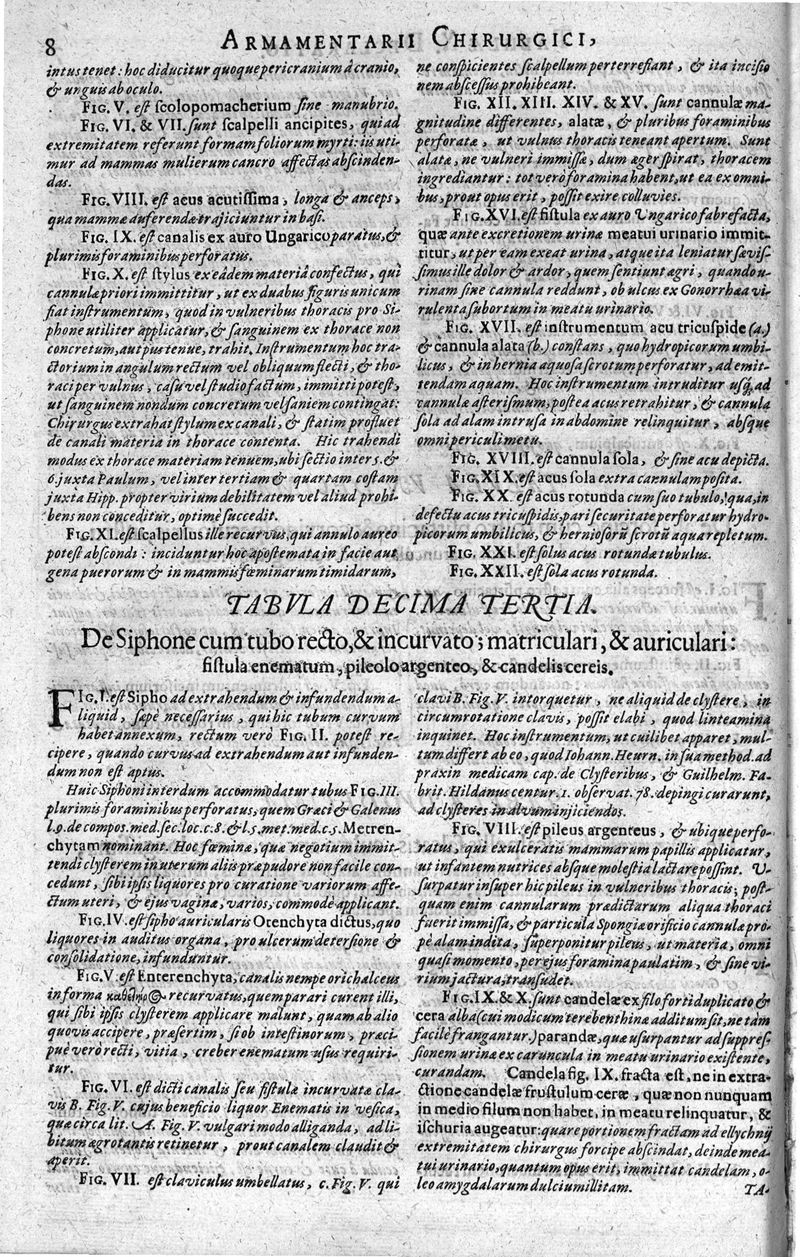 8
ARMAMENTARII CHIRURGICI,
intus tenet: hoc diducitur quoque pericranium â cranio,
& unguis ab oculo.
FIG. V. est scolopomacherium sine manubrio.
FIG. VI. & VII. sunt scalpelli ancipites, qui ad
extremitatem referunt formam foliorum myrti: iis uti-
mur ad mammas mulierum cancro affectas abscinden-
das.
FIG. VIII. est acus acutissima, longa & anceps,
qua mammæ auferendæ trajiciuntur in basi.
FIG. IX. est canalis ex auro Ungarico paratus, &
plurimis foraminibus perforatus.
FIG. X. est stylus ex eâdem materiâ confectus, qui
cannulæ priori immittitur, ut ex duabus figuris unicum
fiat instrumentum, quod in vulneribus thoracis pro Si-
phone utiliter applicatur, & sanguinem ex thorace non
concretum, aut pus tenue, trahit. Instrumentum hoc tra-
ctorium in angulum rectum vel obliquum flecti, & tho-
raci per vulnus, casu vel studio factum, immitti potest,
ut sanguinem nondum concretum vel saniem contingat:
Chirurgus extrahat stylum ex canali, & statim profluet
de canali materia in thorace contenta. Hic trahendi
modus ex thorace materiam tenuem, ubi sectio inter 5. &
6. juxta Paulum, vel inter tertiam & quartam costam
juxta Hipp. propter virium debilitatem vel aliud prohi-
bens non conceditur, optimè succedit.
FIG. XI. est scalpellus ille recurvus, qui annulo aureo
potest abscondi: inciduntur hoc apostemata in facie aut
gena puerorum & in mammis fœminarum timidarum,
ne conspicientes scalpellum perterrefiant, & ita incisio
nem abscessus prohibeant.
FIG. XII. XIII. XIV. & XV. sunt cannulæ ma-
gnitudine differentes, alatæ, & pluribus foraminibus
perforatæ, ut vulnus thoracis teneant apertum. Sunt
alatæ, ne vulneri immissæ, dum æger spirat, thoracem
ingrediantur: tot verò foramina habent, ut ea ex omni-
bus, prout opus erit, possit exire colluvies.
FIG. XVI. est fistula ex auro Ungarico fabrefacta,
quæ ante excretionem urinæ meatui urinario immit-
titur, ut per eam exeat urina, atque ita leniatur sævis-
simus ille dolor & ardor, quem sentiunt ægri, quando u-
rinam sine cannula reddunt, ob ulcus ex Gonorrhœa vi-
rulenta subortum in meatu urinario.
FIG. XVII. est instrumentum acu tricuspide (a.)
& cannula alata (b.) constans, quo hydropicorum umbi-
licus, & in hernia aquosa scrotum perforatur, ad emit-
tendam aquam. Hoc instrumentum intruditur usq; ad
cannulæ asterismum, postea acus retrahitur, & cannula
sola ad alam intrusa in abdomine relinquitur, absque
omni periculi metu.
FIG. XVIII. est cannula sola, & sine acu depicta.
FIG. XIX. est acus sola extra cannulam posita.
FIG. XX. est acus rotunda cum suo tubulo, qua, in
defectu acus tricuspidis, pari securitate perforatur hydro-
picorum umbilicus, & herniosorũ scrotũ aqua repletum.
FIG. XXI. est solus acus rotundæ tubulus.
FIG. XXII. est sola acus rotunda.
TABVLA DECIMA TERTIA.
De Siphone cum tubo recto, & incurvato; matriculari, & auriculari:
fistula enematum, pileolo argenteo, & candelis cereis.
FIG. I. est Sipho ad extrahendum & infundendum a-
liquid, sæpe necessarius, qui hic tubum curvum
habet annexum, rectum verò FIG. II. potest re-
cipere, quando curvus ad extrahendum aut infunden-
dum non est aptus.
Huic Siphoni interdum accommodatur tubus FIG. III.
plurimis foraminibus perforatus, quem Græci & Galenus
l. 9. de compos. med. sec. loc. c. 8. & l. 5. met. med. c. 5. Metren-
chytam nominant. Hoc fœminæ, quæ negotium immit-
tendi clysterem in uterum aliis præ pudore non facile con-
cedunt, sibi ipsis liquores pro curatione variorum affe-
ctum uteri, & ejus vaginæ, varios, commodè applicant.
FIG. IV. est sipho auricularis Otenchyta dictus, quo
liquores in auditus organa, pro ulcerum detersione &
consolidatione, infunduntur.
FIG. V. est Enterenchyta, canalis nempe orichalceus
in forma recurvatus, quem parari curent illi,
qui sibi ipsis clysterem applicare malunt, quam ab alio
quovis accipere, præsertim, si ob intestinorum, præci-
puè verò recti, vitia, creber enematum usus requiri-
tur.
FIG. VI. est dicti canalis seu fistulæ incurvatæ cla-
vis B. Fig. V. cujus beneficio liquor Enematis in vesica,
quæ circa lit. A. Fig. V. vulgari modo alliganda, ad li-
bitum ægrotantis retinetur, prout canalem claudit &
aperit.
FIG. VII. est claviculus umbellatus, c. Fig. V. qui
clavi B. Fig. V. intorquetur, ne aliquid de clystere, in
circumrotatione clavis, possit elabi, quod linteamina
inquinet. Hoc instrumentum, ut cuilibet apparet, mul-
tum differt ab eo, quod Iohann. Heurn. in sua method. ad
praxin medicam cap. de Clysteribus, & Guilhelm. Fa-
brit. Hildanus centur. 1. observat. 78. depingi curarunt,
ad clysteres in alvum injiciendos.
FIG. VIII. est pileus argenteus, & ubique perfo-
ratus, qui exulceratis mammarum papillis applicatur,
ut infantem nutrices absque molestia lactare possint. U-
surpatur insuper hic pileus in vulneribus thoracis; post-
quam enim cannularum prædictarum aliqua thoraci
fuerit immissa, & particula Spongiæ orificio cannulæ pro-
pè alam indita, superponitur pileus, ut materia, omni
quasi momento, per ejus foramina paulatim, & sine vi-
rium jactura, transudet.
FIG. IX. & X. sunt candelæ ex filo forti duplicato &
cera alba (cui modicum terebenthinæ additum sit, ne tàm
facilè frangantur.) parandæ, quæ usurpantur ad suppres-
sionem urinæ ex caruncula in meatu urinario existente,
curandam. Candela fig. IX. fracta est, ne in extra-
ctione candelæ frustulum ceræ, quæ non nunquam
in medio filum non habet, in meatu relinquatur, &
ischuria augeatur: quare portionem fractam ad ellychnij
extremitatem chirurgus forcipe abscindat, deinde mea-
tui urinario, quantum opus erit, immittat candelam, o-
leo amygdalarum dulcium illitam.
TA-